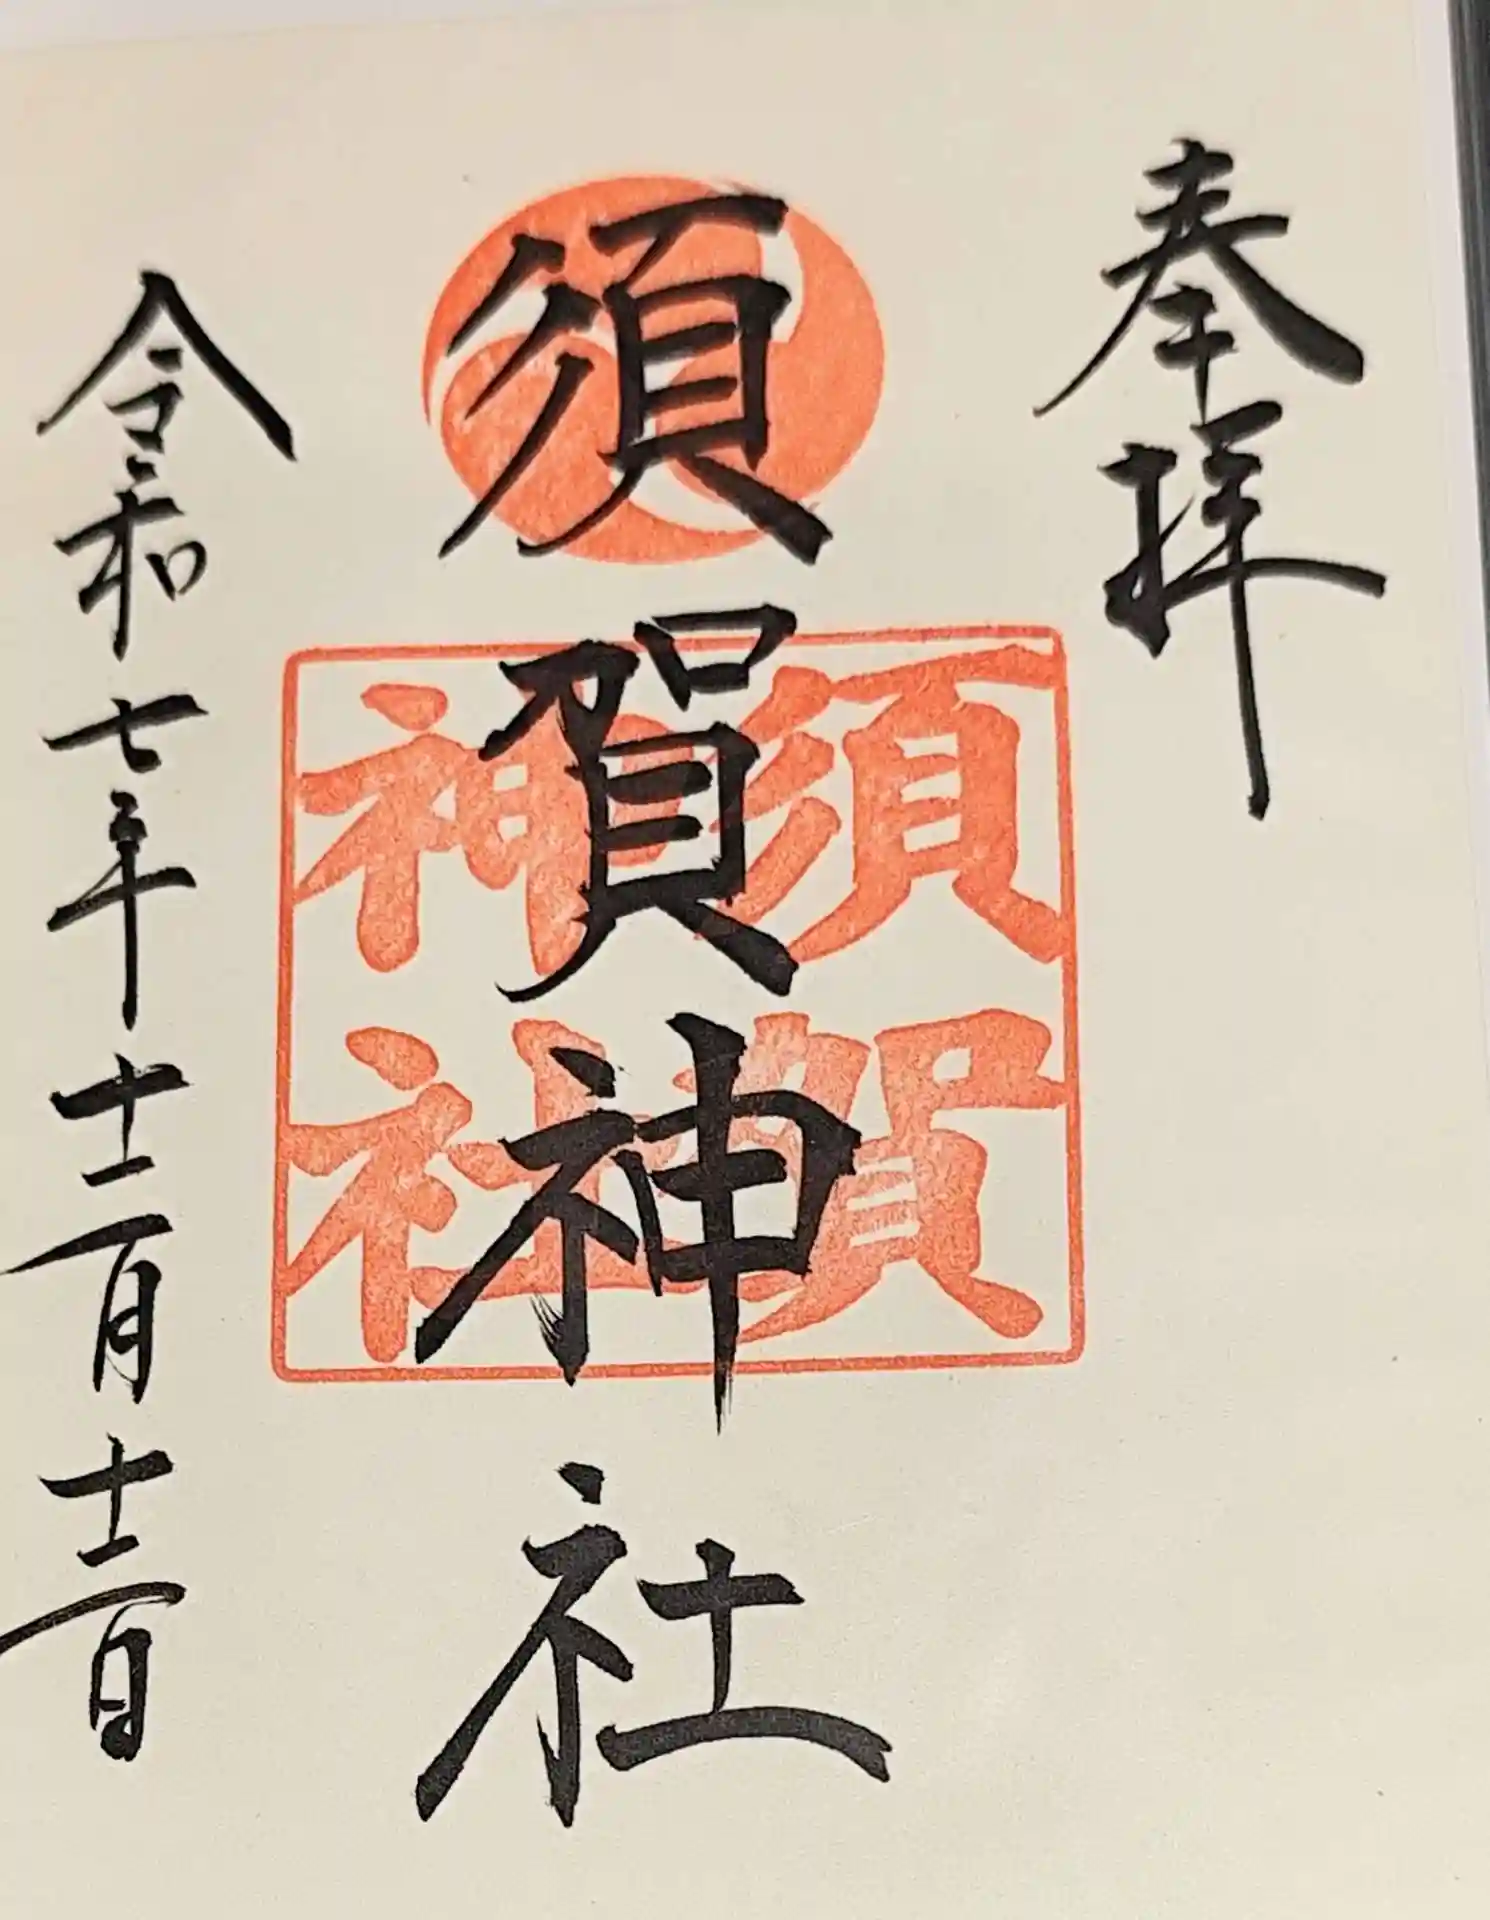 奉拝
須賀神社
須賀
神社
令和七年十二月十二日